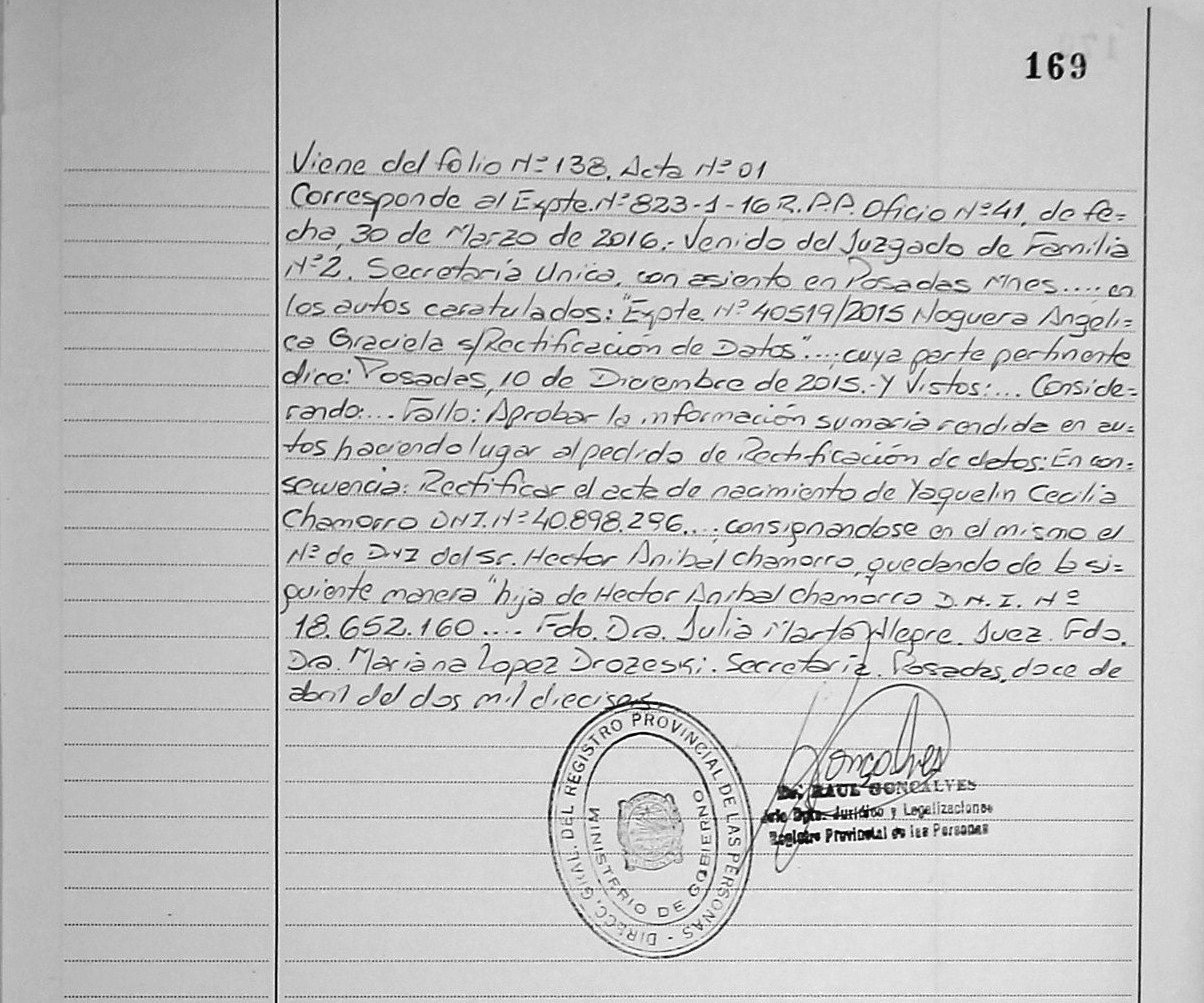 169
Viene del folio Nº 138. Acta Nº 01
Corresponde al Expte. Nº 823-1-16 R.P.P. Oficio Nº 41, de fe=
cha, 30 de Marzo de 2016.- Venido del Juzgado de Familia
Nº 2. Secretaría Unica, con asiento en Posadas Mnes.... en
los autos caratulados: "Expte. Nº 40519/2015 Noguera Angeli=
ca Graciela s/Rectificación de Datos"...; cuya parte pertinente
dice: Posadas, 10 de Diciembre de 2015.- Y Vistos:... Conside=
rando:... Fallo: Aprobar la información sumaria rendida en au=
tos haciendo lugar al pedido de Rectificación de datos: En con=
secuencia: Rectificar el acta de nacimiento de Yaquelin Cecilia
Chamorro DNI. Nº 40.898.296...; consignandose en el mismo el
Nº de DNI del Sr. Hector Anibal Chamorro, quedando de la si=
guiente manera "hija de Hector Anibal Chamorro D.N.I. Nº
18.652.160.... Fdo. Dra. Julia Marta Alegre. Juez. Fdo.
Dra. Mariana Lopez Drozeski. Secretaria. Posadas, doce de
abril del dos mil dieciseis.
DIRECC. GRAL. DEL REGISTRO PROVINCIAL DE LAS PERSONAS -
MINISTERIO DE GOBIERNO
Goncalves
Dr. RAUL GONCALVES
Jefe Dpto. Jurídico y Legalizaciones
Registro Provincial de las Personas